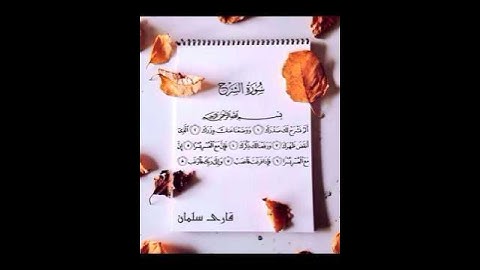 سُورَةُ الشَّرْحِ
بِسْمِ اللَّهِ الرَّحْمَٰنِ الرَّحِيمِ
أَلَمْ نَشْرَحْ لَكَ صَدْرَكَ ١ وَوَضَعْنَا عَنكَ وِزْرَكَ ٢ الَّذِي
أَنقَضَ ظَهْرَكَ ٣ وَرَفَعْنَا لَكَ ذِكْرَكَ ٤ فَإِنَّ مَعَ الْعُسْرِ يُسْرًا ٥ إِنَّ
مَعَ الْعُسْرِ يُسْرًا ٦ فَإِذَا فَرَغْتَ فَانصَبْ ٧ وَإِلَىٰ رَبِّكَ فَارْغَب ٨
قارى سلمان